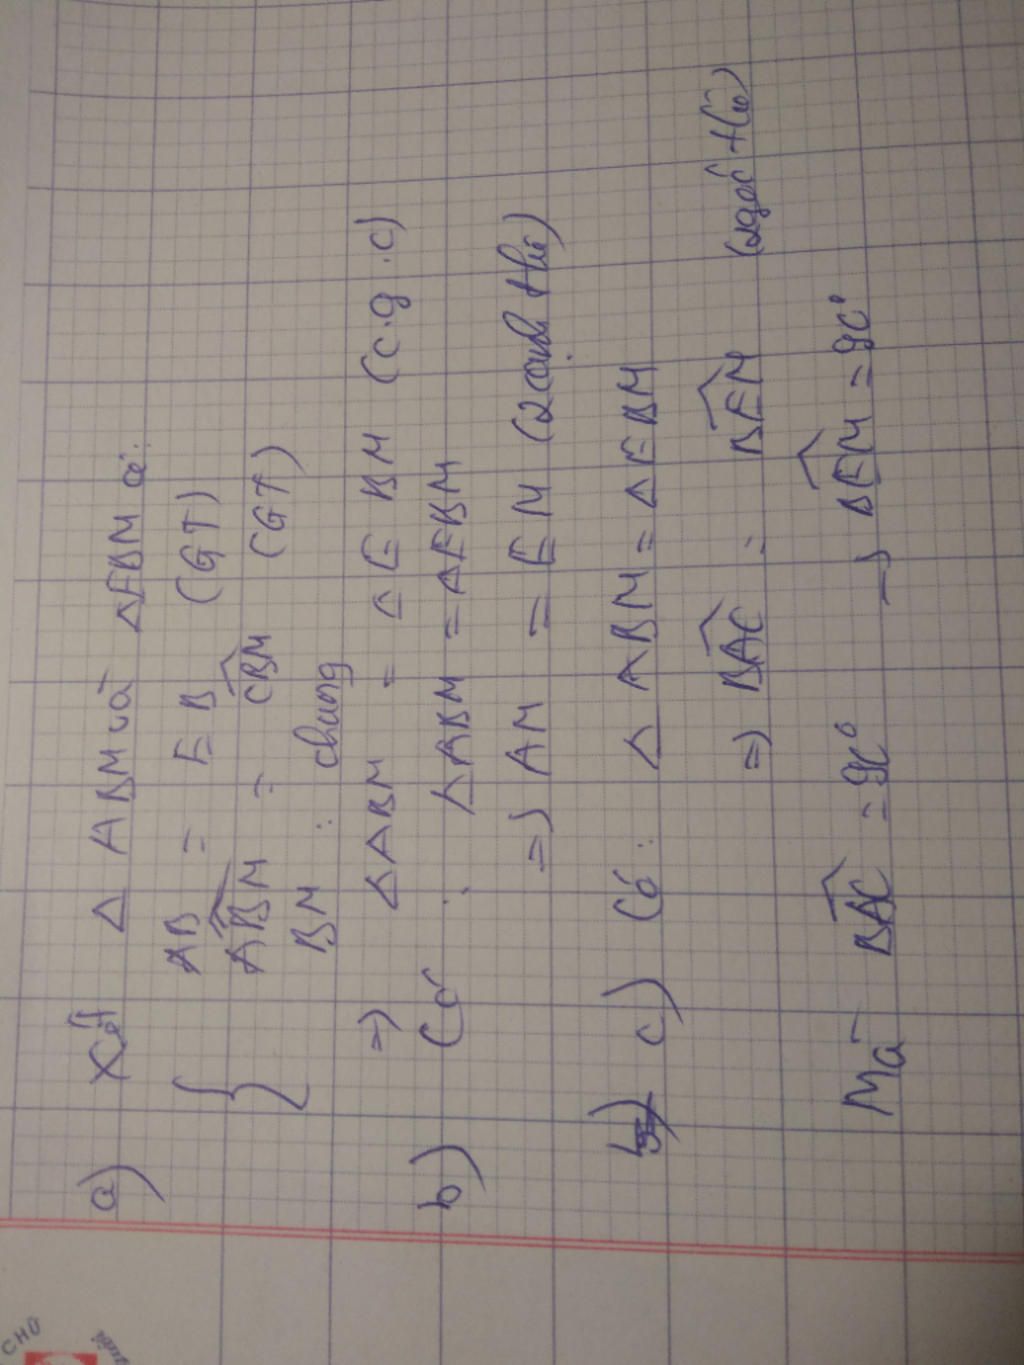 a) Xét Δ ABM và ΔEBM có:
AB = EB (GT)
ABM = CBM (GT)
BM : chung
=> ΔABM = ΔEBM (c.g.c)
b) Có : ΔABM = ΔEBM
=> AM = EM (2 cạnh t/ứ)
c) Có: Δ ABM = ΔEBM
=> BAC = BEM (2 góc t/ứ)
Mà BAC = 90° => BEM = 90°
CHỮ